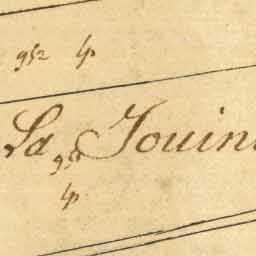 952 lp
La Jouin
952
lp